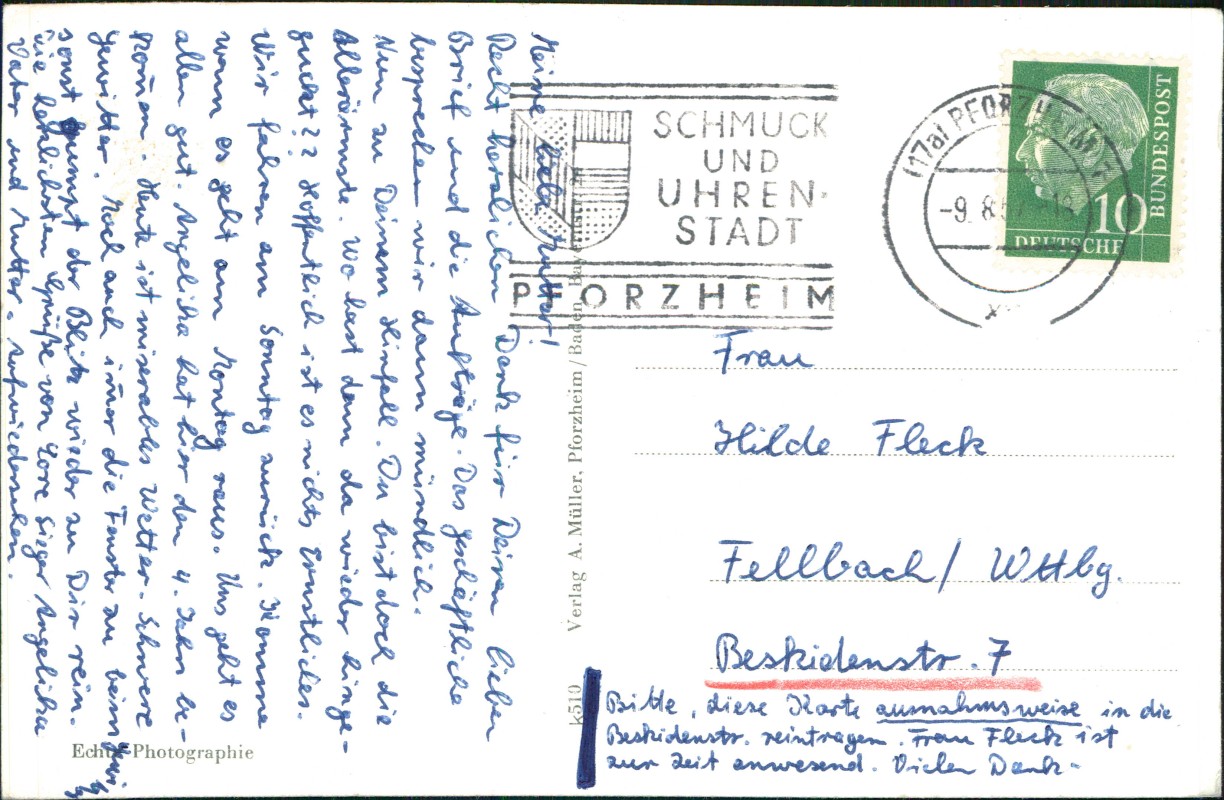 Meine liebe Mutter!
Recht herzlichen Dank für Deinen lieben
Brief und die Aufträge. Das geschäftliche
besprechen wir dann mündlich.
Nun zu Deinem Hinfall. Du bist doch die
Allerärmste. Wo hast denn da wieder hinge-
guckt?? Hoffentlich ist es nichts Ernstliches.
Wir fahren am Sonntag zurück. Komme
wann es geht am Montag raus. Uns geht es
allen gut. Angelika hat hier den 4. Zahn be-
kommen. Heute ist miserables Wetter. Schwere
Gewitter. Mach auch immer die Fenster zu beim
sonst kommt der Blitz wieder zu Dir rein.
Die herzlichsten Grüße von Lore Sieger Angelika
Vater und Mutter. Aufwiedersehen.
Echte Photographie
k510 Verlag A. Müller, Pforzheim/Baden, Bayernstr.
SCHMUCK
UND
UHREN-
STADT
PFORZHEIM
(17a) PFORZHEIM
-9.8.57
10
DEUTSCHE
BUNDESPOST
Frau
Hilde Fleck
Fellbach/ Wttbg.
Beskidenstr. 7
Bitte, diese Karte ausnahmsweise in die
Beskidenstr. reintragen. Frau Fleck ist
zur Zeit anwesend. Vielen Dank-